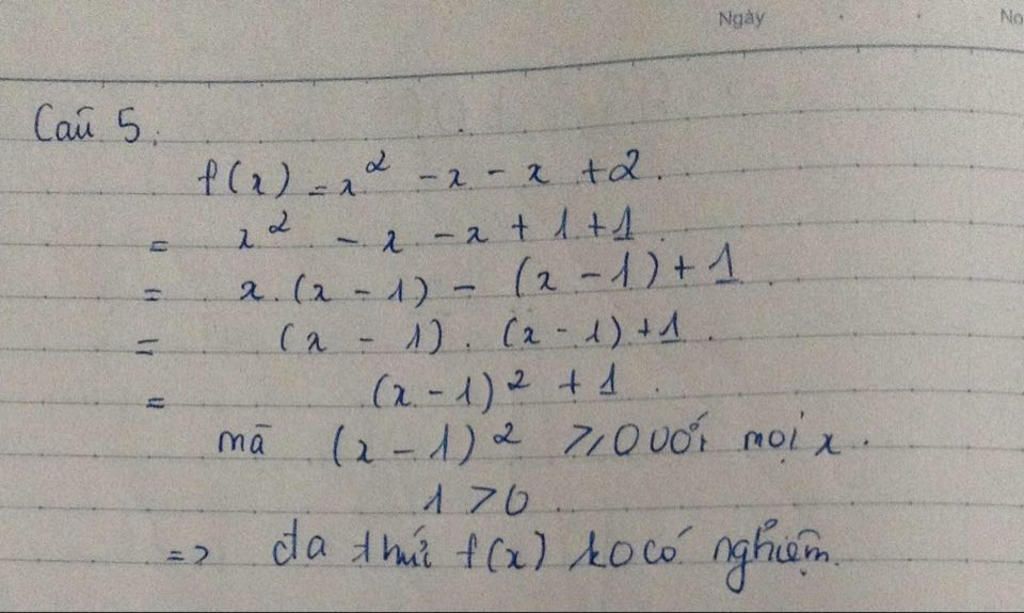 Ngày No
Caū 5.
f(x) = x² - x - x + 2.
= x² - x - x + 1 + 1.
= x.(x - 1) - (x - 1) + 1.
= (x - 1).(x - 1) + 1.
= (x - 1)² + 1.
mā (x - 1)² ⩾ 0 với mọi x.
1 > 0
=> đa thức f(x) ko có nghiệm.